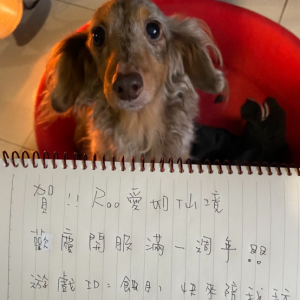 賀!! Roo愛如仙境
歡慶開服滿一週年
遊戲ID:餓月 快來陪我玩